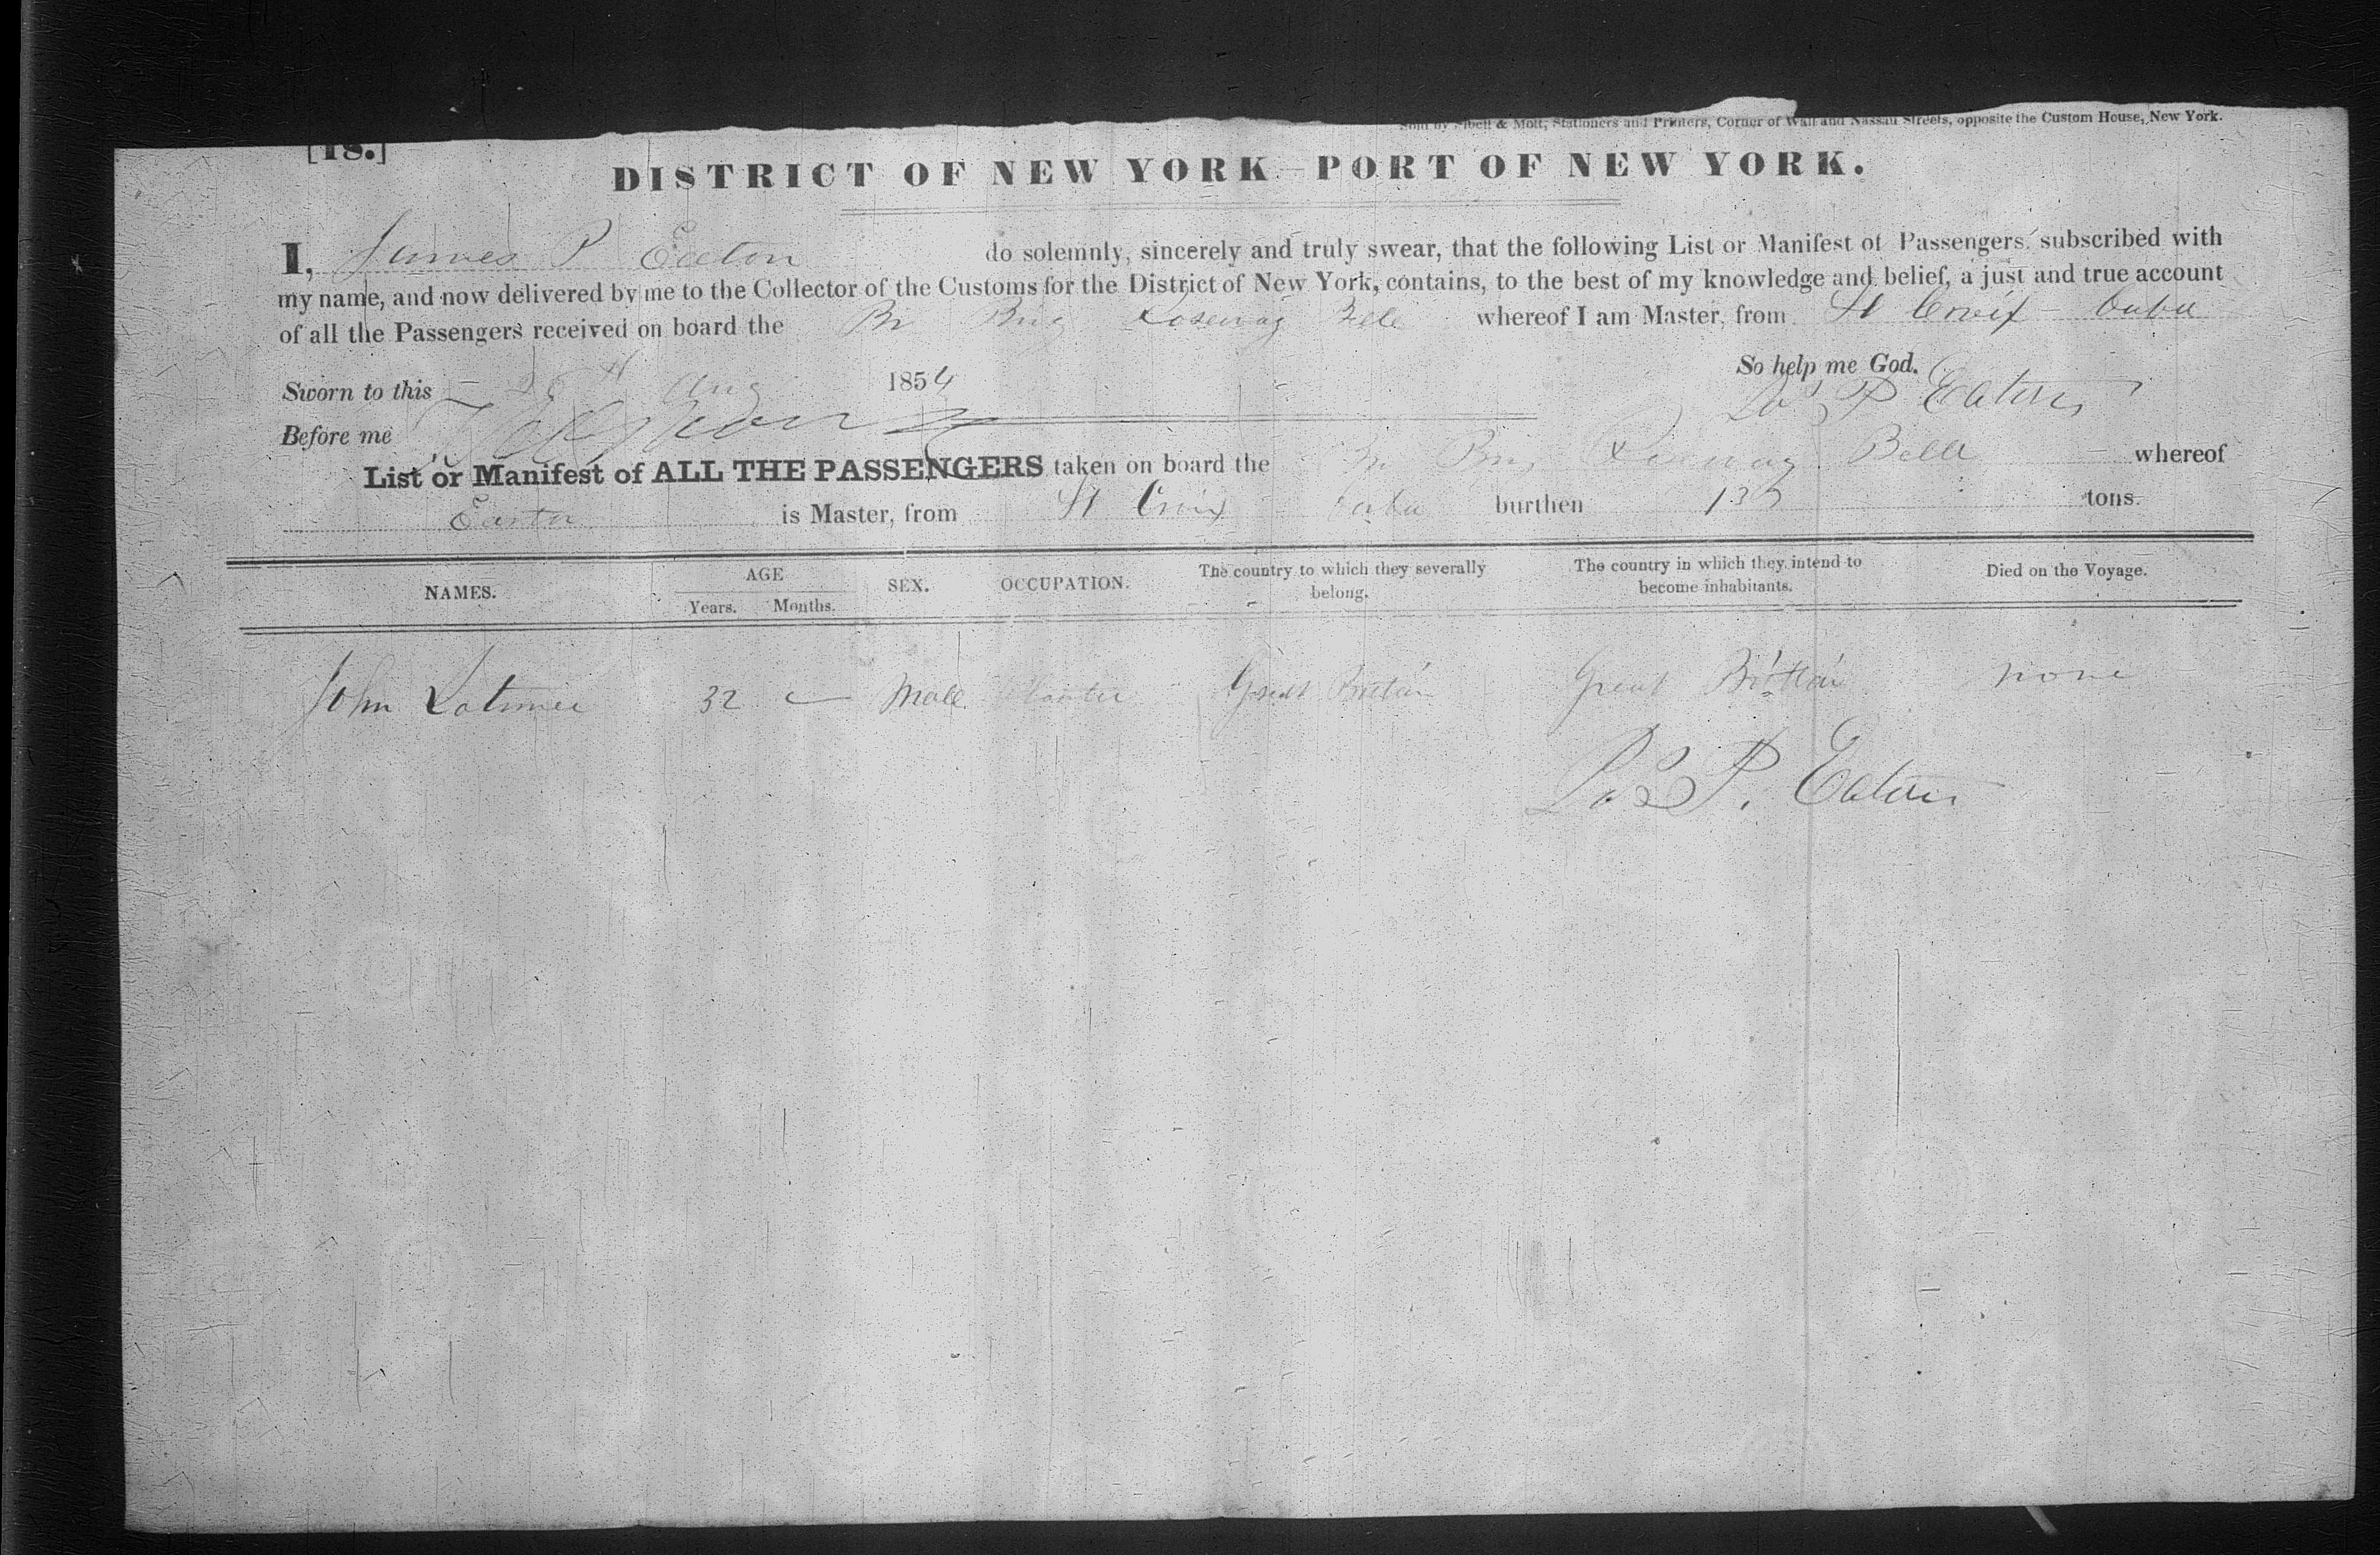 Sold by Sibell & Mott, Stationers and Printers, Corner of Wall and Nassau Streets, opposite the Custom House, New York.
[18.]
DISTRICT OF NEW YORK—PORT OF NEW YORK.
I, James P Eaton do solemnly, sincerely and truly swear, that the following List or Manifest of Passengers, subscribed with
my name, and now delivered by me to the Collector of the Customs for the District of New York, contains, to the best of my knowledge and belief, a just and true account
of all the Passengers received on board the Br Brig Roseway Belle whereof I am Master, from St Croix - Cuba
So help me God.
Sworn to this 28th Aug 1854
Jas P Eaton
Before me
List or Manifest of ALL THE PASSENGERS taken on board the Br Brig Roseway Belle whereof
Eaton is Master, from St Croix Cuba burthen tons.
NAMES. AGE SEX. OCCUPATION. The country to which they severally belong. The country in which they intend to become inhabitants. Died on the Voyage.
Years. Months.
John Latimer 32 — Male Planter Great Britain Great Brittain none
Jas P. Eaton